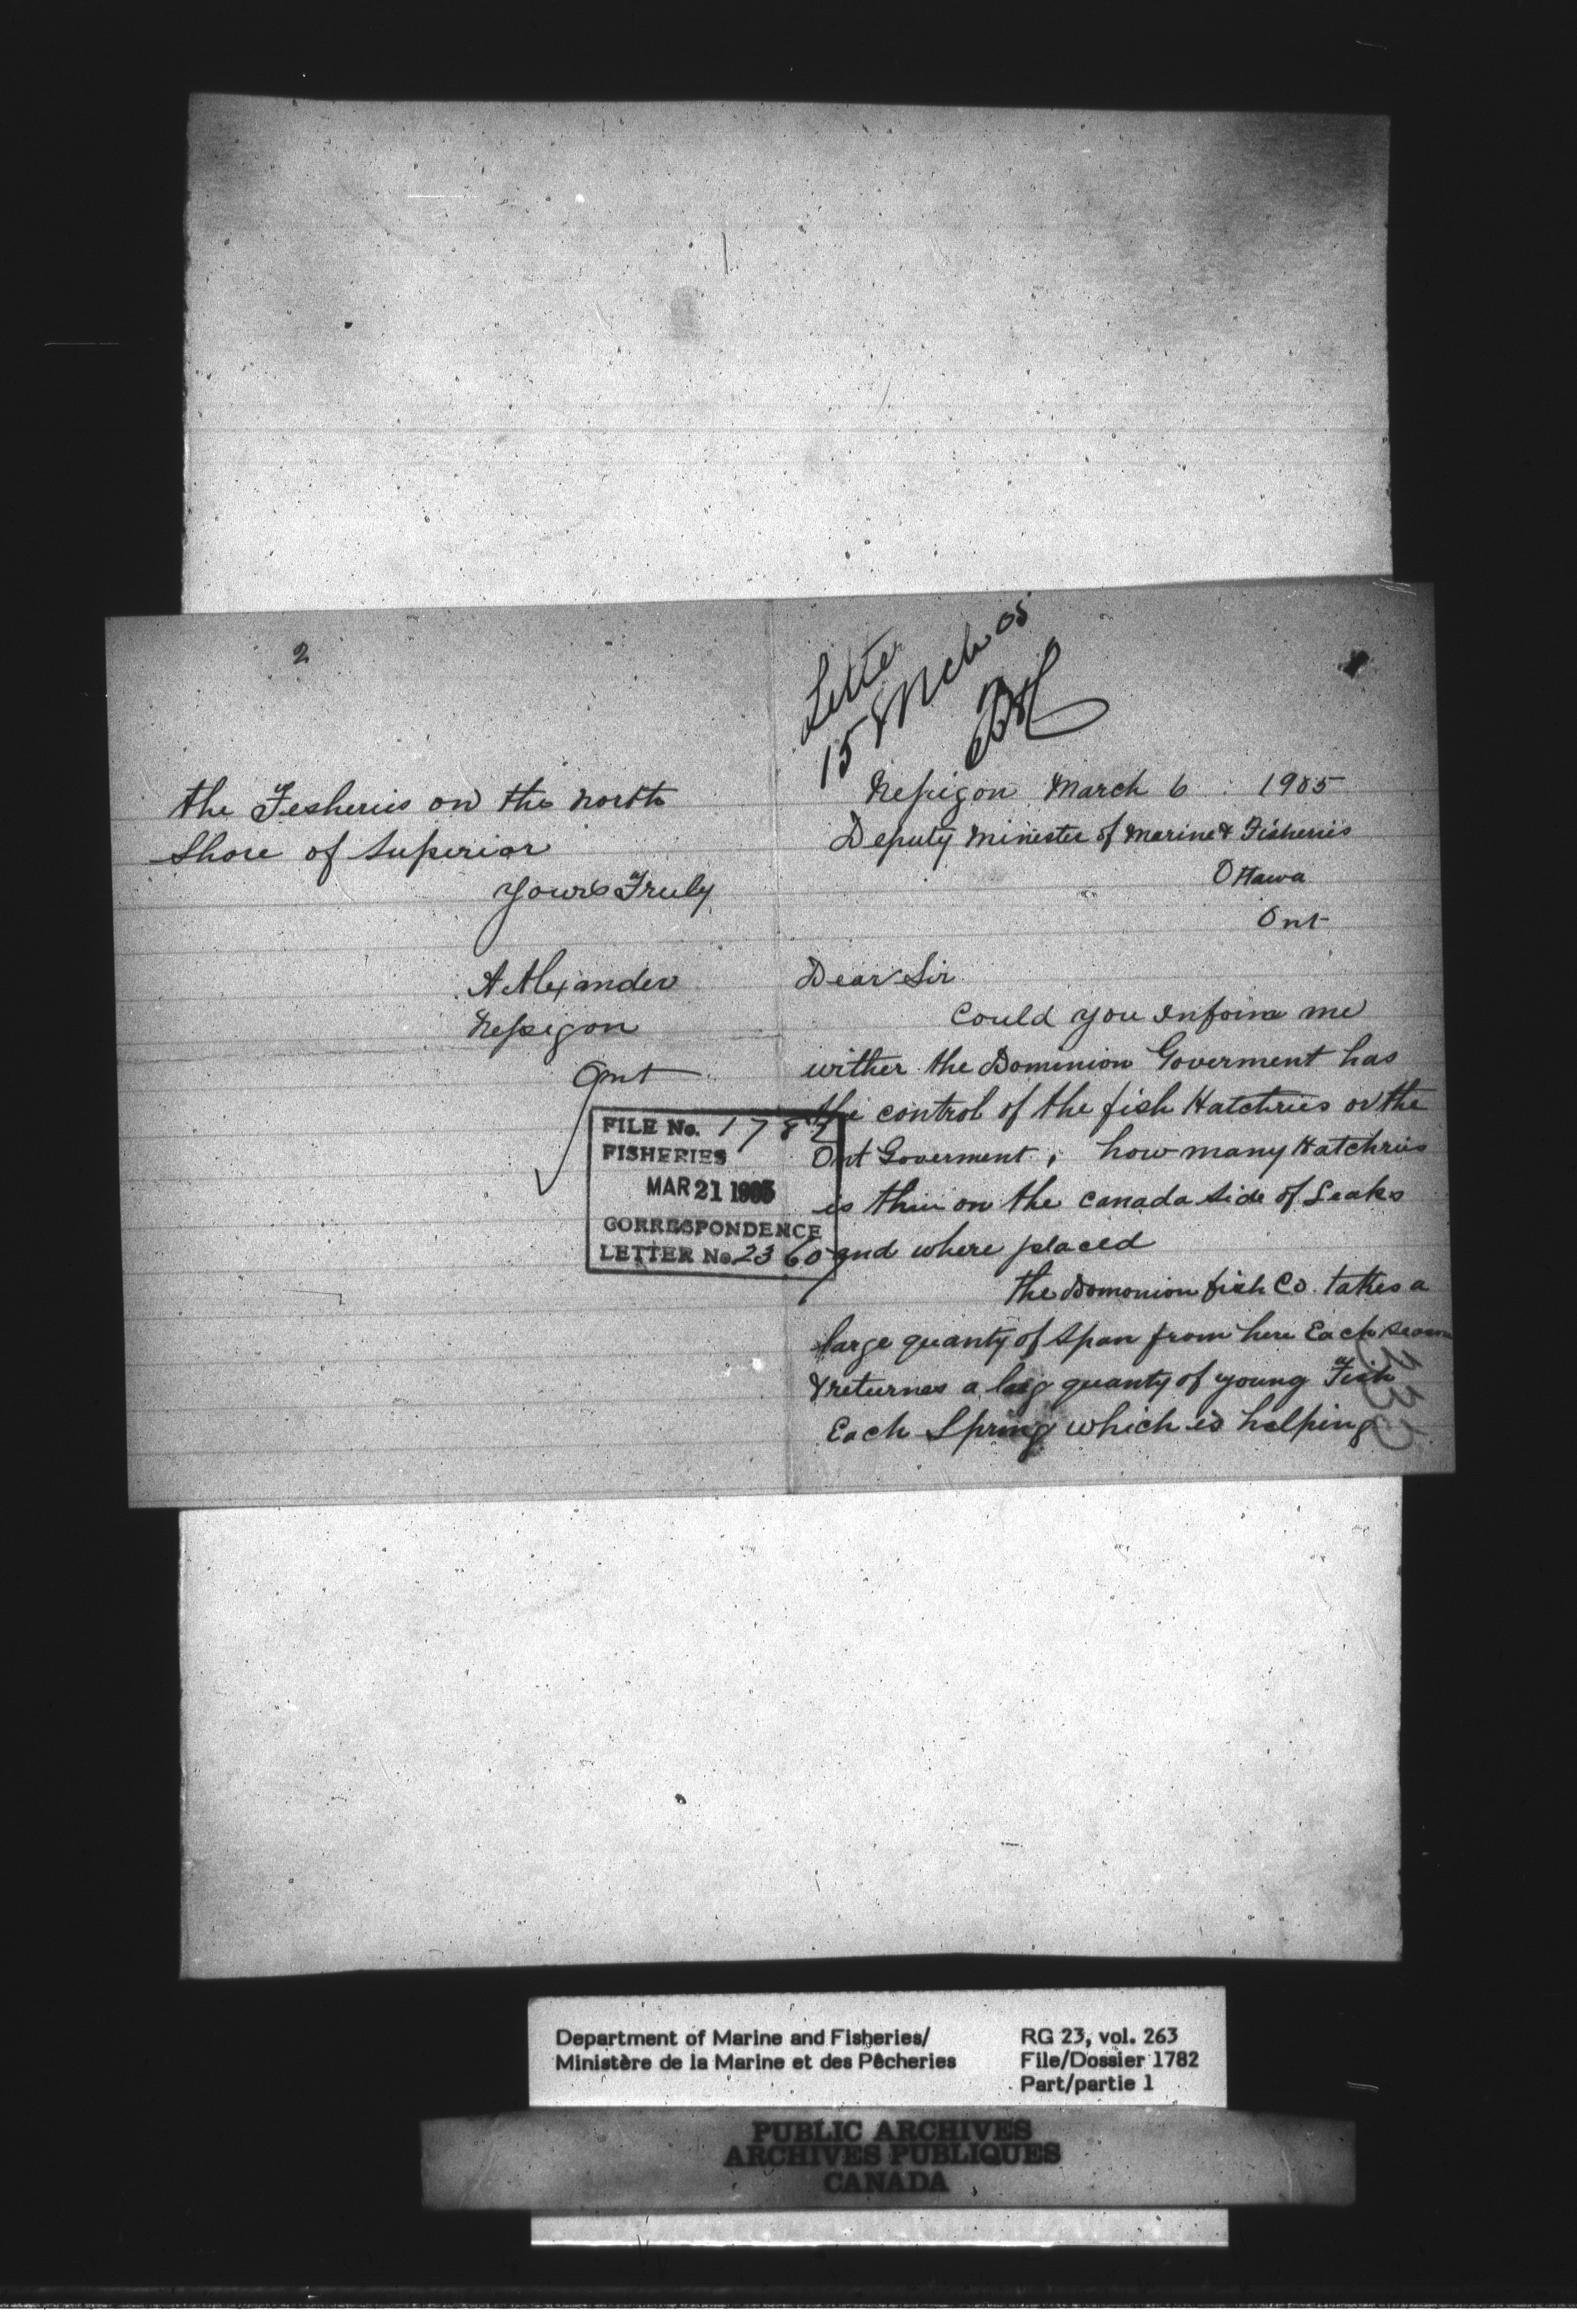 Letter
15 Mch 05
1
Nepigon March 6 1905
Deputy Minester of Marine & Fisheries
Ottawa
Ont
Dear Sir
Could you Inform me
wither the Dominion Goverment has
the control of the fish Hatchries or the
Ont Goverment, how many Hatchries
is thier on the Canada side of Leaks
and where placed
the Domonion fish Co. takes a
large quanty of Span from here Each season
& returnes a larg quanty of young Fish
Each Spring which is helping
2
the Fesheries on the north
Shore of Superior
Yours Truly
A Alexander
Nepigon
Ont
FILE No. 1782
FISHERIES
MAR 21 1905
CORRESPONDENCE
LETTER No. 2360
Department of Marine and Fisheries/
Ministère de la Marine et des Pêcheries
RG 23, vol. 263
File/Dossier 1782
Part/partie 1
PUBLIC ARCHIVES
ARCHIVES PUBLIQUES
CANADA